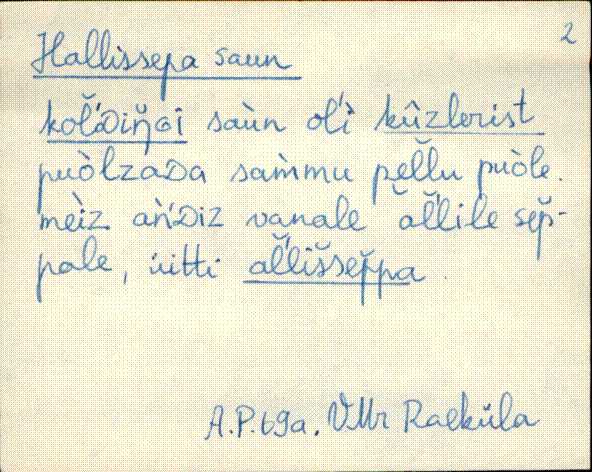 2
Hallissepa saun
kol̆'ᴅiŋ̆ɢi saùn ol'ì kûzlerist
puòlzaᴅa sam̀mu pel̆lu puòle.
mèiz an̆'ᴅiz vanale ăl̆lile sep̆-
pale, üitti al̆'lis̆sep̆pa.
A.P. 69a. VMr Raeküla